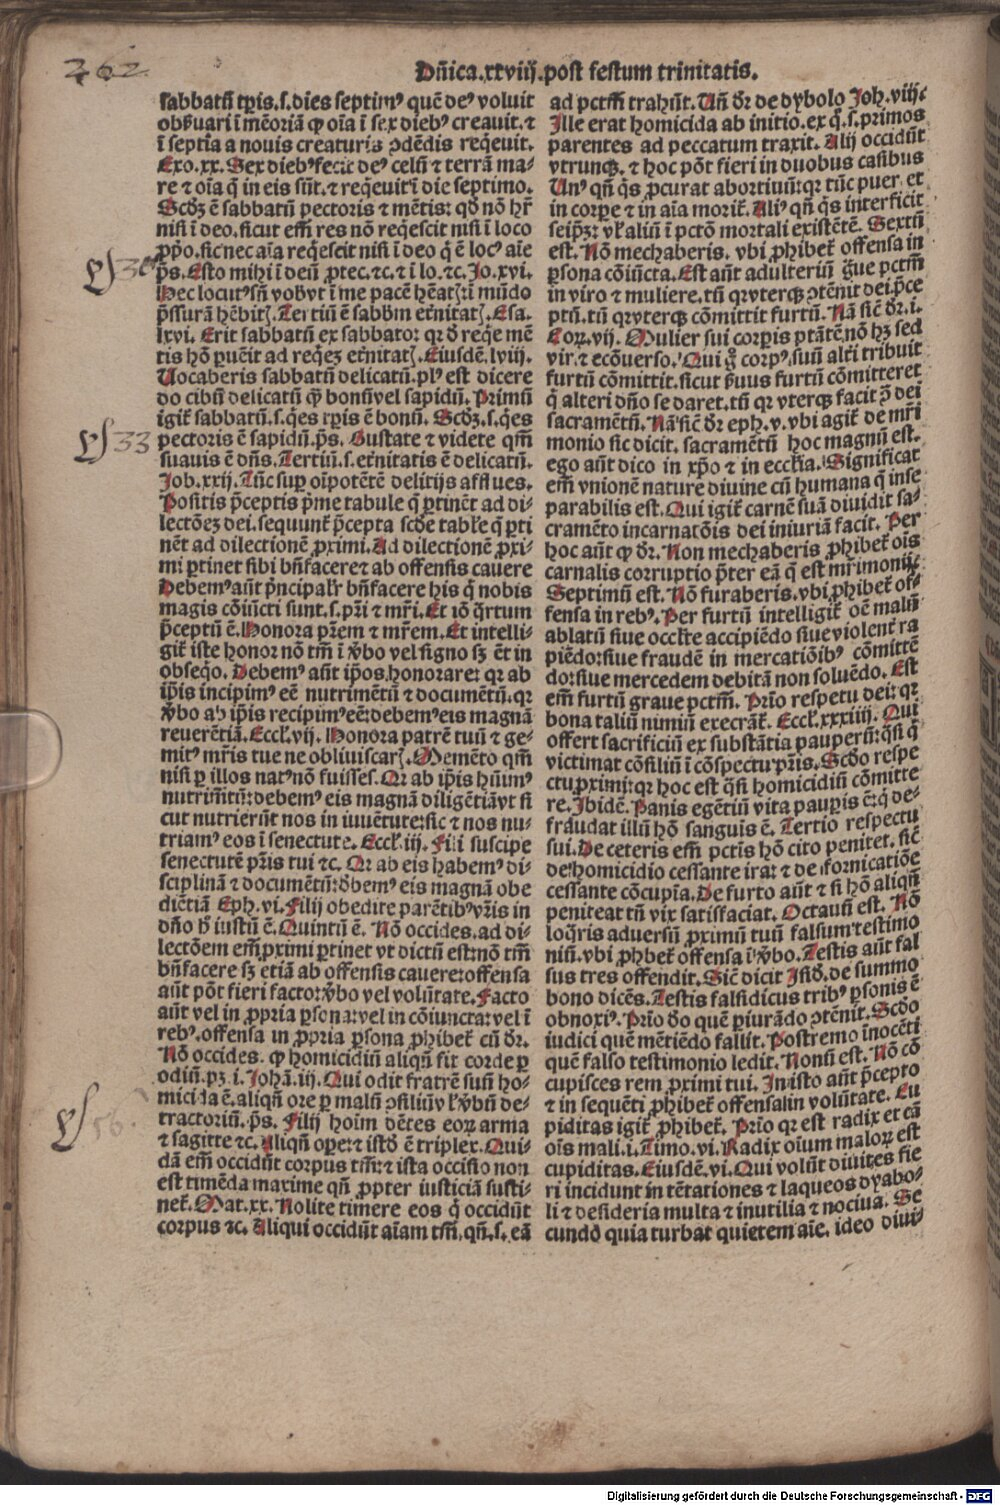 262
Dñica.xxviij.post festum trinitatis.
sabbatũ tp̃is.s.dies septimꝰ quẽ deꝰ voluit
obẞuari ĩ mẽoriã ꝙ oĩa ĩ sex diebꝰ creauit.⁊
ĩ septĩa a nouis creaturis ↄ̃dẽdis req̃euit.
Exo.xx. Sex diebꝰ fecit deꝰ celũ ⁊ terrã ma⸗
re ⁊ oĩa q̃ in eis sũt.⁊ req̃euit ĩ die septimo.
Scd̃ꝫ ẽ sabbatũ pectoris ⁊ mẽtis: qd̃ nõ hr̃
nisi ĩ deo.sicut em̃ res nõ req̃escit nisi ĩ loco
ꝓp̃o.sic nec aĩa req̃escit nisi ĩ deo q̃ ẽ locꝰ aĩe
p̃s. Esto mihi ĩ deũ ꝓtec.⁊c.⁊ ĩ lo.⁊c. Jo.xvi.
Hec locutꝰ sũ vob̃ vt ĩ me pacẽ hẽatꝭ: ĩ mũdo
p̃ssurã hẽbitꝭ. Tertiũ ẽ sabb̃m et̃nitatꝭ. Esa.
lxvi. Erit sabbatũ ex sabbato: qr d̃ req̃e mẽ
tis hõ ꝑuẽit ad req̃eꝫ et̃nitatꝭ. Eiusdẽ.lviij.
Uocaberis sabbatũ delicatũ.plꝰ est dicere
do cibũ delicatũ q̃ꝫ bonũ vel sapidũ. Primũ
igit̃ sabbatũ.s.q̃es tp̃is ẽ bonũ. Scd̃ꝫ.s.q̃es
pectoris ẽ sapidũ.p̃s. Gustate ⁊ videte qm̃
suauis ẽ dñs. Tertiũ.s.et̃nitatis ẽ delicatũ.
Job.xxij. Tũc sup̃ oĩpotẽtẽ delitijs afflues.
Positis p̃ceptis p̃me tabule q̃ ꝑtinẽt ad di⸗
lectõeꝫ dei.sequunt̃ p̃cepta scd̃e tabl̃e q̃ ꝑti
nẽt ad dilectionẽ ꝓximi. Ad dilectionẽ ꝓxi⸗
mi ꝑtinet sibi bñfacere ⁊ ab offensis cauere
Debemꝰ aũt p̃ncipalr̃ bñfacere his q̃ nobis
magis cõiũcti sunt.s.pr̃i ⁊ mr̃i. Et iõ q̃rtum
p̃ceptũ ẽ. Honora pr̃em ⁊ mr̃em. Et intelli⸗
git̃ iste honor nõ tm̃ ĩ v̓bo vel signo sꝫ ẽt in
obseq̃o. Debemꝰ aũt ip̃os honorare: qr ab
ip̃is incipimꝰ eẽ nutrimẽtũ ⁊ documẽtũ. qr
v̓bo ab ip̃is recipimꝰ eẽ: debemꝰ eis magnã
reuerẽtiã. Eccl̃.vij. Honora patrẽ tuũ ⁊ ge⸗
mitꝰ mr̃is tue ne obliuiscarꝭ. Memẽto qm̃
nisi ꝑ illos natꝰ nõ fuisses. Qr ab ip̃is hũimꝰ
nutrim̃tũ: debemꝰ eis magnã diligẽtiã vt si
cut nutrierũt nos in iuuẽtute: sic ⁊ nos nu⸗
triamꝰ eos ĩ senectute. Eccl̃.iij. Fili suscipe
senectutẽ pr̃is tui ⁊c. Qr ab eis habemꝰ di⸗
sciplinã ⁊ documẽtũ: d̃bemꝰ eis magnã obe
diẽtiã Eph.vi. Filij obedite parẽtibꝰ vr̃is in
dño h̃ iustũ ẽ. Quintũ ẽ. Nõ occides. ad di⸗
lectõem em̃ ꝓximi ꝑtinet vt dictũ est: nõ tm̃
bñfacere sꝫ etiã ab offensis cauere: offensa
aũt põt fieri facto: v̓bo vel volũtate. Facto
aũt vel in ꝓpria ꝑsona: vel in cõiuncta: vel ĩ
rebꝰ. offensa in ꝓpria ꝑsona ꝓhibet̃ cũ dr̃.
Nõ occides. ꝙ homicidiũ aliqñ fit corde ꝑ
odiũ.pꝫ.i. Johã.iij. Qui odit fratrẽ suũ ho⸗
micida ẽ.aliqñ ore ꝑ malũ ↄsiliũ vl̃ v̓bũ de⸗
tractoriũ.p̃s. Filij hoĩm dẽtes eoꝝ arma
⁊ sagitte ⁊c. Aliqñ oꝑe: ⁊ istd̃ ẽ triplex. Qui⸗
dã em̃ occidũt corpus tm̃: ⁊ ista occisio non
est timẽda maxime qñ ꝓpter iusticiã susti⸗
net̃. Mat.xx. Nolite timere eos q̃ occidũt
corpus ⁊c. Aliqui occidũt aĩam tm̃.qñ.s.eã
ad pctm̃ trahũt. Uñ dr̃ de dyabolo Joh.viij.
Ille erat homicida ab initio. ex q̃.s.primos
parentes ad peccatum traxit. Alij occidũt
vtrunqꝫ.⁊ hoc põt fieri in duobus casibus
Unꝰ qñ q̃s ꝓcurat abortiuũ: qr tũc puer et
in corꝑe ⁊ in aĩa morit̃. Aliꝰ qñ q̃s interficit
seip̃ꝫ: vl̃ aliũ ĩ pctõ mortali existẽtẽ. Sextũ
est. Nõ mechaberis. vbi ꝓhibet̃ offensa in
ꝑsona cõiũcta. Est aũt adulteriũ g̃ue pctm̃
in viro ⁊ muliere.tũ qr vterqꝫ ↄtẽnit dei p̃ce
ptũ.tũ qr vterqꝫ cõmittit furtũ. Nã sic̃ dr̃.i.
Coꝝ.vij. Mulier sui corꝑis ptãtẽ nõ hꝫ sed
vir.⁊ ecõuerso. Qui g̃ corpꝰ suũ alt̃i tribuit
furtũ cõmittit. sicut ẞuus furtũ cõmitteret
q̃ alteri dño se daret.tũ qr vterqꝫ facit p̃ dei
sacramẽtũ. Nã sic̃ dr̃ eph.v. vbi agit̃ de mr̃i
monio sic dicit. sacramẽtũ hoc magnũ est.
ego aũt dico in xp̃o ⁊ in eccl̃ia. Significat
em̃ vnionẽ nature diuine cũ humana q̃ inse
parabilis est. Qui igit̃ carnẽ suã diuidit sa⸗
cramẽto incarnatõis dei iniuriã facit. Per
hoc aũt ꝙ dr̃. Non mechaberis ꝓhibet̃ oĩs
carnalis corruptio p̃ter eã q̃ est mr̃imonij.
Septimũ est. Nõ furaberis. vbi ꝓhibet̃ of⸗
fensa in rebꝰ. Per furtũ intelligit̃ oẽ malũ
ablatũ siue occl̃te accipiẽdo siue violent̃ ra
piẽdo: siue fraudẽ in mercatiõibꝰ cõmittẽ
do: siue mercedem debitã non soluẽdo. Est
em̃ furtũ graue pctm̃. Prĩo respectu dei: qr
bona taliũ nimiũ execrat̃. Eccl̃.xxxiiij. Qui
offert sacrificiũ ex substãtia pauperũ: q̃si q̃
victimat cõsiliũ ĩ cõspectu pr̃is. Scd̃o respe
ctu ꝓximi: qr hoc est q̃si homicidiũ cõmitte
re. Ibidẽ. Panis egẽtiũ vita pauꝑis ẽ: q̃ de⸗
fraudat illũ hõ sanguis ẽ. Tertio respectu
sui. De ceteris em̃ pctis hõ cito penitet. sic̃
de homicidio cessante ira: ⁊ de fornicatiõe
cessante cõcupĩa. De furto aũt ⁊ si hõ aliqñ
peniteat tñ vix satisfaciat. Octauũ est. Nõ
loq̃ris aduersũ ꝓximũ tuũ falsum testimo
niũ. vbi ꝓhibet̃ offensa ĩ v̓bo. Testis aũt fal
sus tres offendit. Sic̃ dicit Isid̃. de summo
bono dicẽs. Testis falsidicus tribꝰ ꝑsonis ẽ
obnoxiꝰ. Prĩo deo quẽ ꝑiurãdo ↄtẽnit. Scd̃o
iudici quẽ mẽtiẽdo fallit. Postremo ĩnocẽti
quẽ falso testimonio ledit. Nonũ est. Nõ cõ
cupisces rem ꝓximi tui. In isto aũt p̃cepto
⁊ in sequẽti ꝓhibet̃ offensa in volũtate. Cu
piditas igit̃ ꝓhibet̃. Prĩo qr est radix et cã
oĩs mali.i. Timo.vi. Radix oĩum maloꝝ est
cupiditas. Eiusdẽ.vi. Qui volũt diuites fie
ri incidunt in tẽtationes ⁊ laqueos dyabo⸗
li ⁊ desideria multa ⁊ inutilia ⁊ nociua. Se
cundo quia turbat quietem aĩe. ideo diui⸗
ps 30
ps 33
ps 56
Digitalisierung gefördert durch die Deutsche Forschungsgemeinschaft - DFG